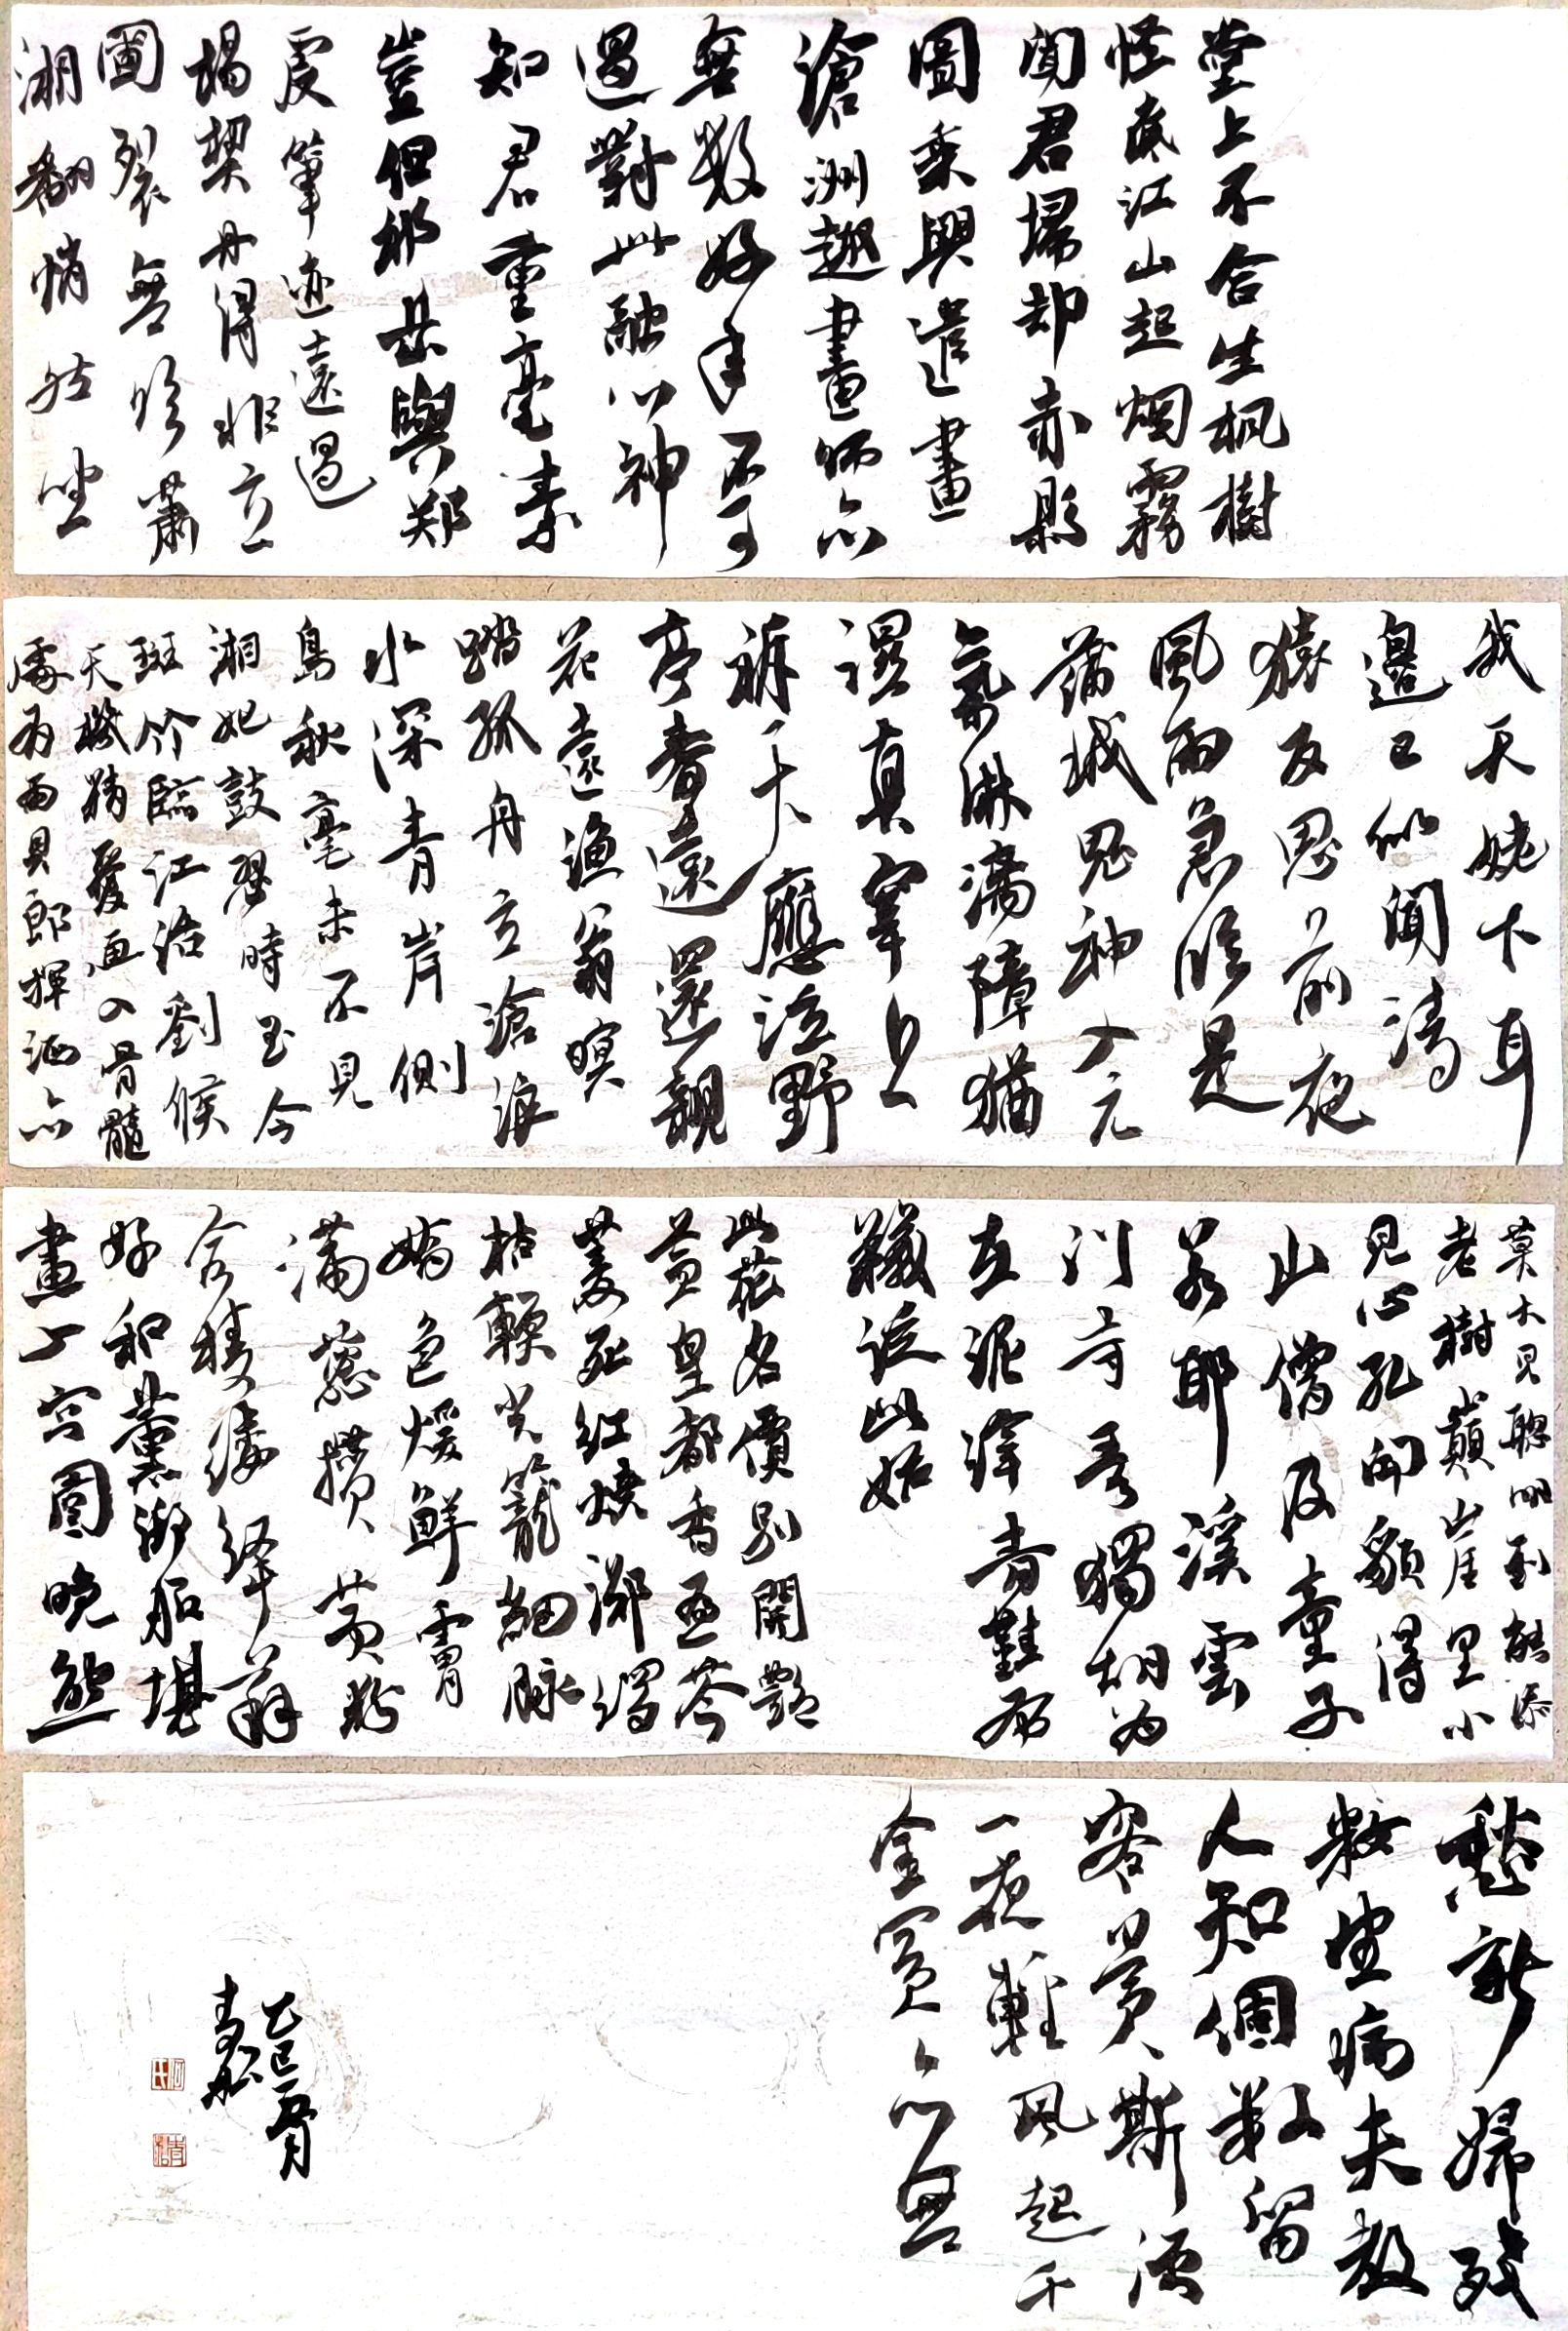 堂上不合生楓樹
怪底江山起烟霧
聞君掃却赤縣
圖乘興遣畫
滄洲趣畫師亦
無數好手不可
遇對此融心神
知君重毫素
豈但祁岳與郑
虔筆迹遠過
楊契丹得非玄
圃裂無乃蕭
湘翻悄然坐
我天姥下耳
邊已似聞清
猿反思前夜
風雨急乃是
蒲城鬼神入元
氣淋漓障猶
濕真宰上
訴天應泣野
亭春遠還雜
花遠漁翁暝
踏孤舟立滄浪
水深青岸側
島秋毫末不見
湘妃鼓瑟時至今
斑竹臨江活劉侯
天機精愛画入骨髓
處有两兒郎揮洒亦
莫大兒聰明到能添
老樹巔崖里小
兒心孔開貌得
山僧及童子
若耶溪雲
門寺吾獨胡为
在泥滓青鞋布
韈從此始
此花名價別開艷
益皇都香遍苓
菱死紅燒躑躅
枯軟光籠細脉
嬌色煖鮮膚
滿蕊攢黄粉
含棱縷絳蘇
好和薰御服堪
畫入宫圖晚態
愁新婦殘
妝望病夫教
人知個数留
客賞斯須
一夜輕風起千
金買亦無
乙巳月
青松